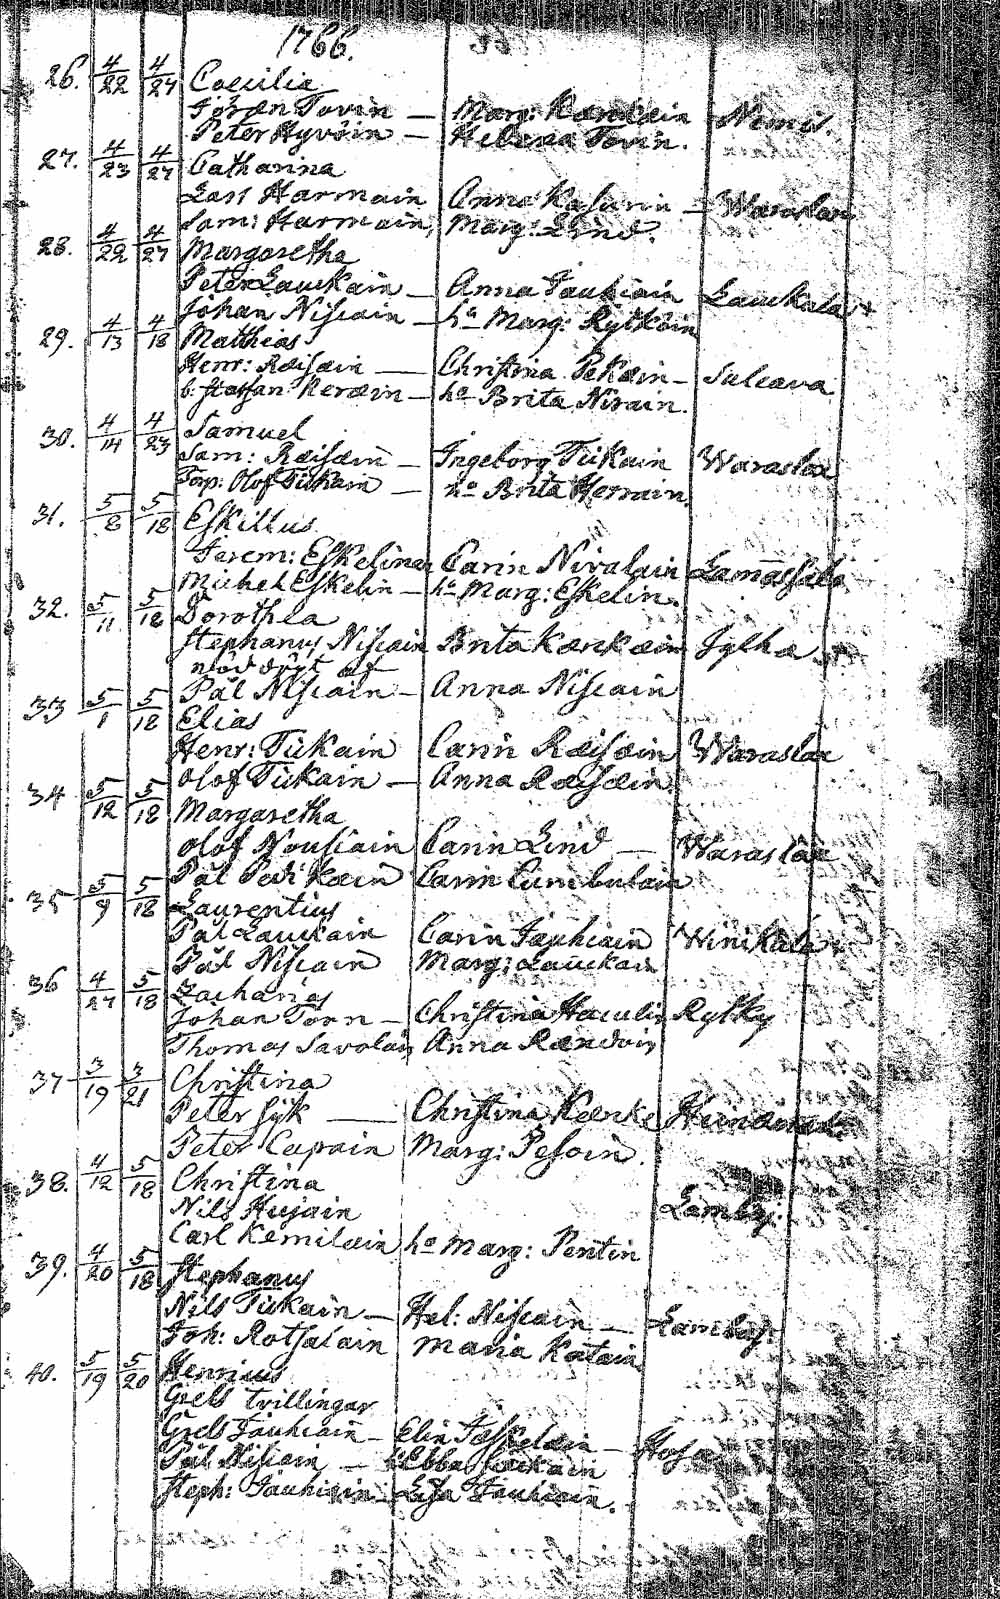 1766.
26. 4/22 4/27 Caecilia
Jöran Tovin — Marg: Karckain Nimis.
Peter Hyvöin — Helena Tovin.
27. 4/23 4/27 Catharina
Lars Harmain Anna Kasurin — Waraslax
Sam: Harmain, Marg: Lind.
28. 4/22 4/27 Margaretha
Peter Lauckain — Anna Jauhiain Lauckala
Johan Nisiain — ha Marg: Rytköin
29. 4/13 4/18 Matthias
Henr: Räisäin — Christina Pekain — Suleava
b: Staffan Keräin — ha Brita Nirain.
30. 4/14 4/23 Samuel
Sam: Räisäin — Ingeborg Tiikain Waraslax
Torp: Olof Tiikain — ha Brita Herrain
31. 5/8 5/18 Eskillus
Jerem: Eskelinen Carin Nivalain Lamassalo
Michel Eskelin — ha Marg: Eskelin.
32. 5/11 5/18 Dorothea
Stephanus Nisiain Brita Karkain Jylha
nöd döpt af
Pål Nisiain — Anna Nisiain
33 5/1 5/18 Elias
Henr: Tiikain Carin Räisäin Waraslax
Olof Tiikain — Anna Räisäin
34 5/12 5/18 Margaretha
Olof Nousiain Carin Lind — Waraslax
Pål Pedikain Carin Cumbulain
35 5/9 5/18 Laurentius
Pål Lauckain Carin Jauhiain Winikala
Pål Nisiain Marg: Lauckain
36 4/27 5/18 Zacharias
Johan Törn — Christina Haculin Rytky
Thomas Savolain Anna Rändoin
37 3/19 3/21 Christina
Peter Sijk — Christina Kærke
Peter Cepain Marg: Pesoin.
38. 4/12 5/18 Christina
Nils Hujain Lambsj:
Carl Kemilain ha Marg: Pentin
39. 4/20 5/18 Stephanus
Nils Tiikain — Hel: Nisiain — Lambsj:
Joh: Rotsalain Maria Katain
40. 5/19 5/20 Henricus
Grels tvillingar
Grels Jauhiain — Elin Jæskelæin — Hosa
Pål Nisiain — h Ebba Laukain
Steph: Jauhiain — Lisa Jauhiain.